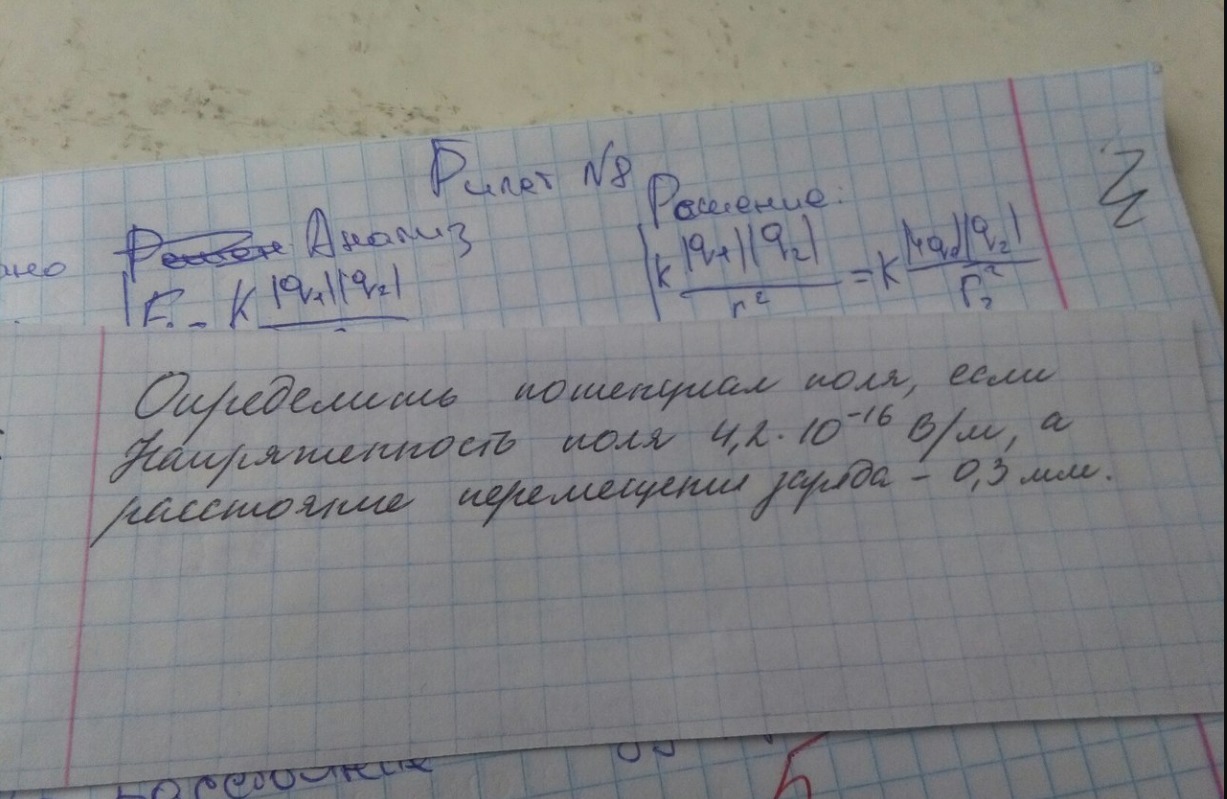 Билет №8
Анализ
Решение:
F₁ = K |q₁||q₂|
K |q₁||q₂| / r² = K |4q₁||q₂| / r₂²
Определить потенциал поля, если
Напряженность поля 4,2·10⁻¹⁶ В/м, а
расстояние перемещения заряда – 0,3 мм.
расстояние
5